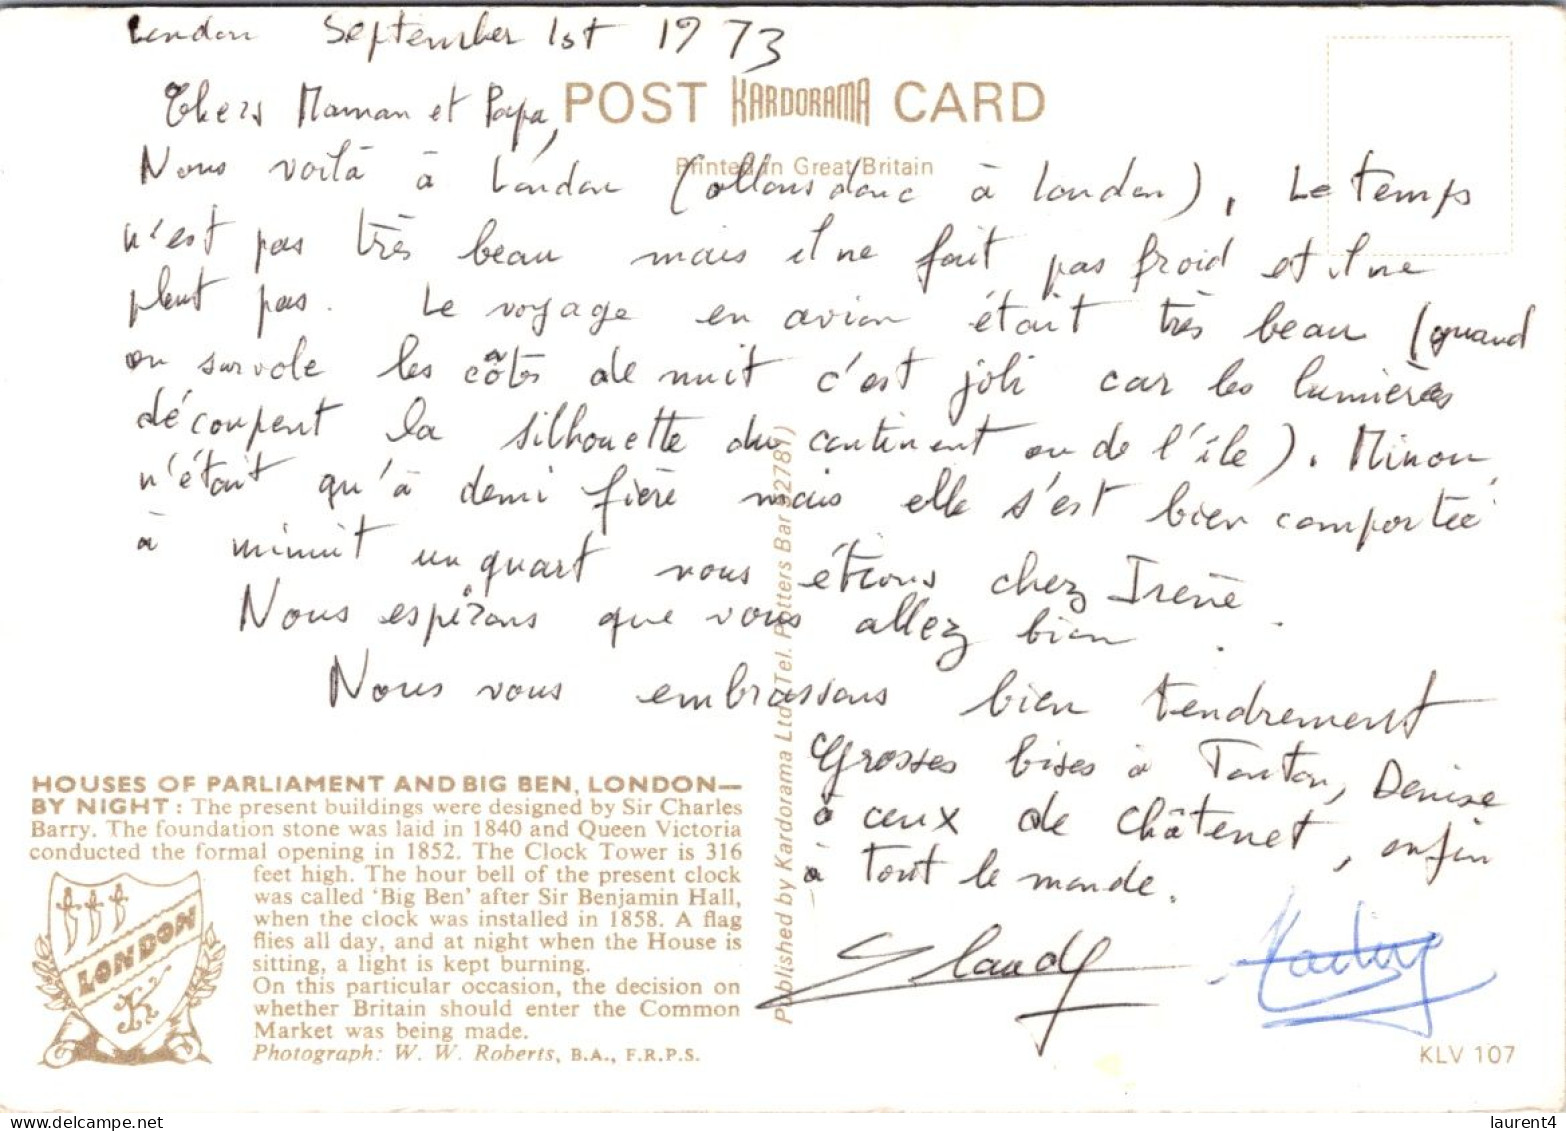 London September 1st 1973
POST KARDORAMA CARD
Chers Maman et Papa,
Printed in Great Britain
Nous voilà à London (allons donc à London). Le temps
n'est pas très beau mais il ne fait pas froid et il ne
pleut pas. Le voyage en avion était très beau (quand
on survole les côtes de nuit c'est joli car les lumières
découpent la silhouette du continent ou de l'île). Minou
n'était qu'à demi fière mais elle s'est bien comportée
à minuit un quart nous étions chez Irène.
Nous espérons que vous allez bien.
Nous vous embrassons bien tendrement
Grosses bises à Tonton, Denise
à ceux de Châtenet, enfin
à tout le monde.
Claudy
HOUSES OF PARLIAMENT AND BIG BEN, LONDON—
BY NIGHT: The present buildings were designed by Sir Charles
Barry. The foundation stone was laid in 1840 and Queen Victoria
conducted the formal opening in 1852. The Clock Tower is 316
feet high. The hour bell of the present clock
was called 'Big Ben' after Sir Benjamin Hall,
when the clock was installed in 1858. A flag
flies all day, and at night when the House is
sitting, a light is kept burning.
On this particular occasion, the decision on
whether Britain should enter the Common
Market was being made.
Photograph: W. W. Roberts, B.A., F.R.P.S.
LONDON
K
Published by Kardorama Ltd. Tel. Potters Bar 52781)
KLV 107
www.delcampe.net
laurent4